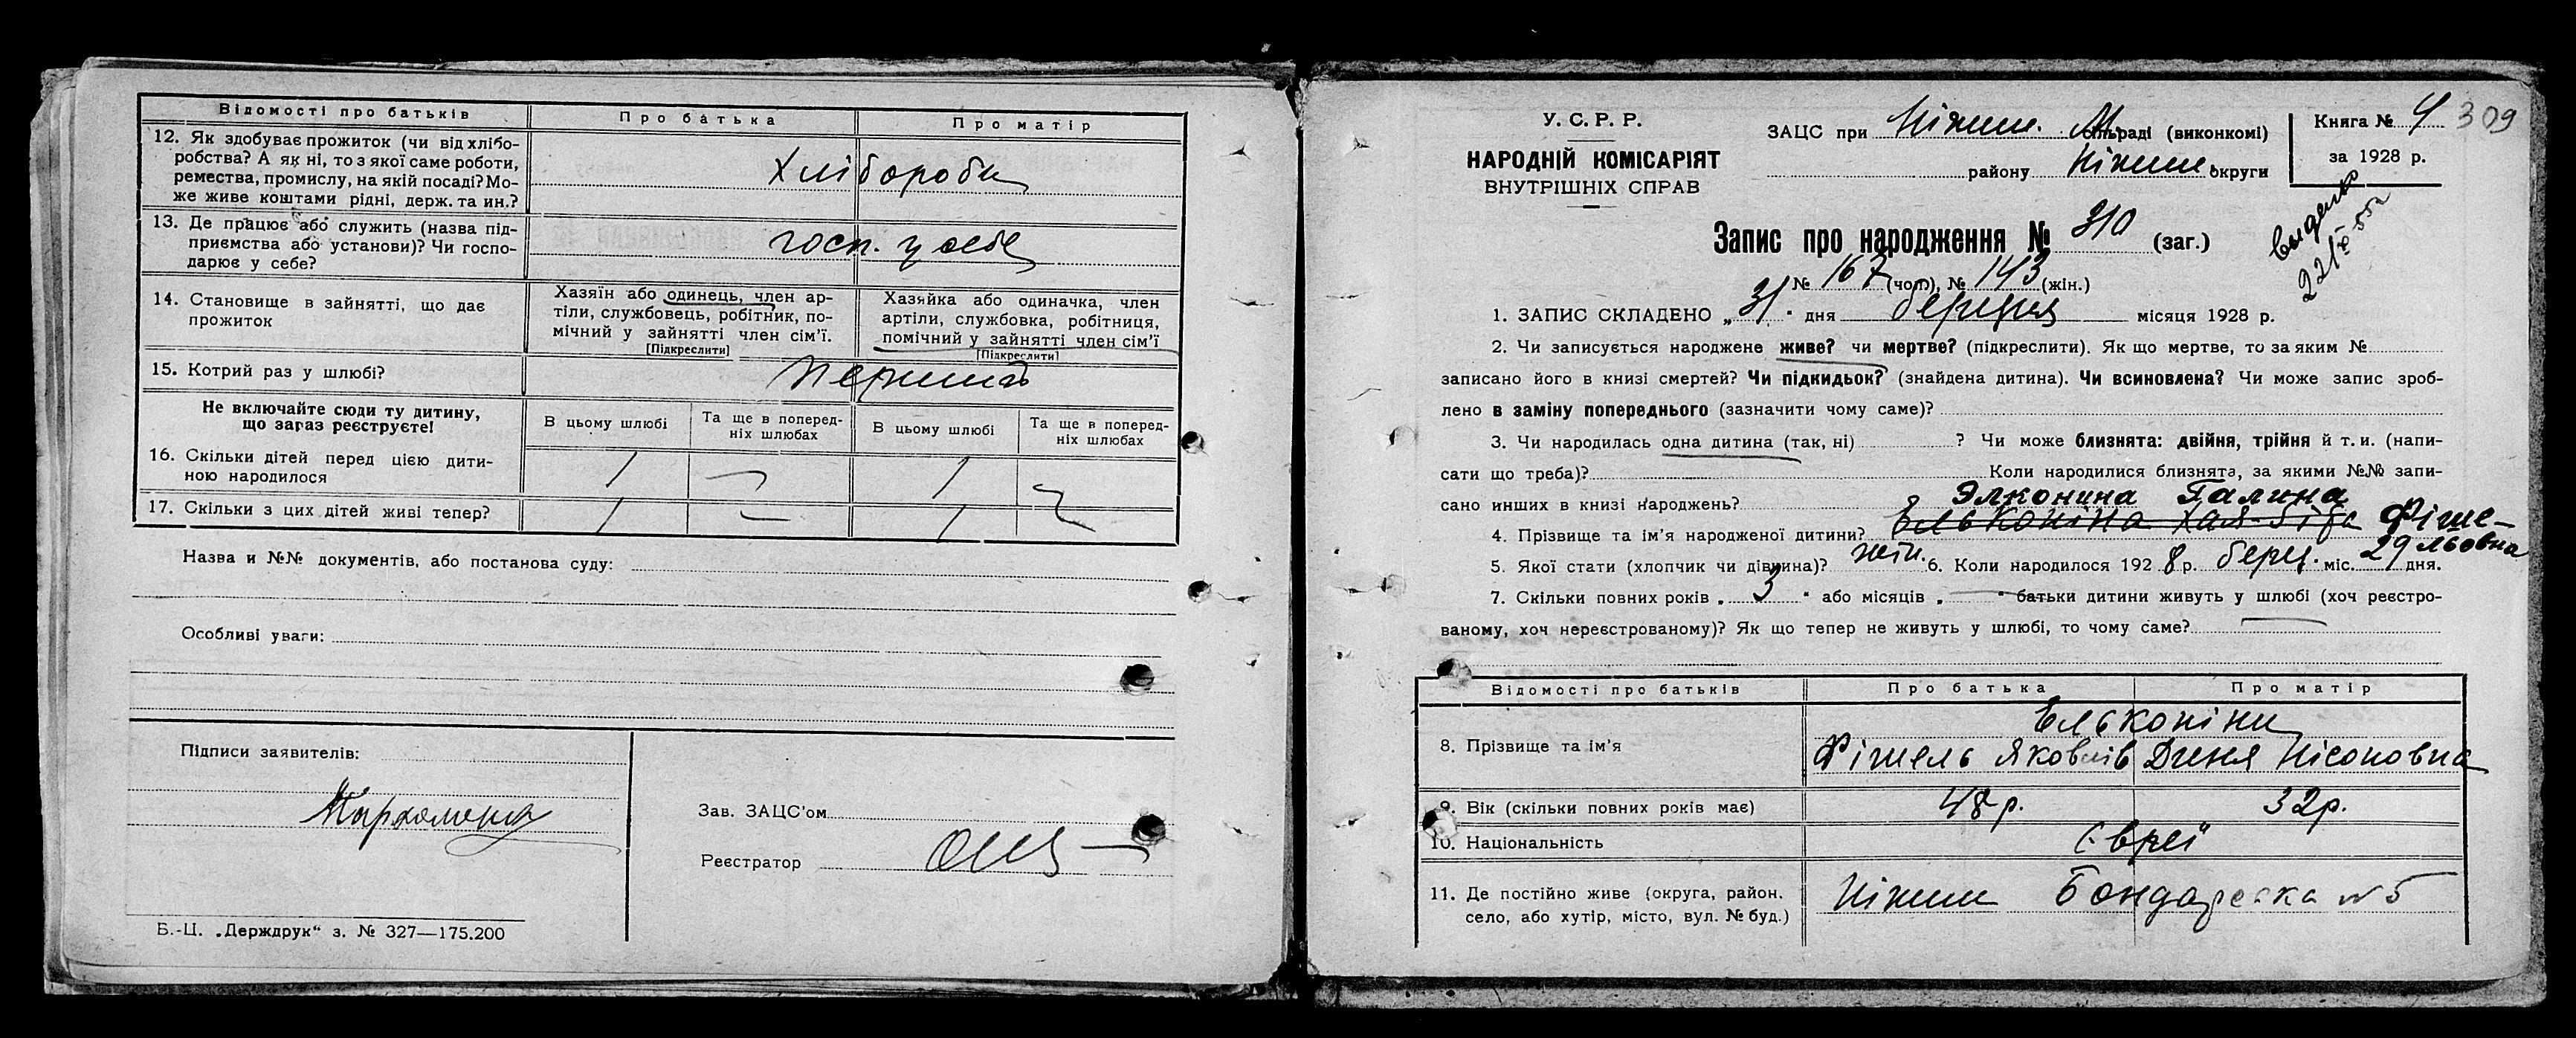 Відомості про батьків Про батька Про матір
12. Як здобуває прожиток (чи від хлібо-
робства? А як ні, то з якої саме роботи,
ремества, промислу, на якій посаді? Мо-
же живе коштами рідні, держ. та ин.?
Хлібороби
13. Де працює або служить (назва під-
приємства або установи)? Чи госпо-
дарює у себе?
госп. у себе
14. Становище в зайнятті, що дає
прожиток
Хазяїн або одинець, член ар-
тіли, службовець, робітник, по-
мічний у зайнятті член сім'ї.
[Підкреслити]
Хазяйка або одиначка, член
артіли, службовка, робітниця,
помічний у зайнятті член сім'ї
[Підкреслити]
15. Котрий раз у шлюбі?
Не включайте сюди ту дитину,
що зараз реєструєте!
В цьому шлюбі
Та ще в поперед-
ніх шлюбах
В цьому шлюбі
Та ще в поперед-
ніх шлюбах
16. Скільки дітей перед цією дити-
ною народилося
1 — 1 —
17. Скільки з цих дітей живі тепер?
1 — 1 —
Назва и №№ документів, або постанова суду:
Особливі уваги:
Підписи заявителів:
Зав. ЗАЦС'ом
Реєстратор
Б.-Ц. „Держдрук“ з. № 327—175.200
У. С. Р. Р.
НАРОДНІЙ КОМІСАРІЯТ
ВНУТРІШНІХ СПРАВ
ЗАЦС при Ніжин. М. сільраді (виконкомі)
району Ніжин. округи
Книга № 4 309
за 1928 р.
Запис про народження № 310 (заг.)
№ 167 (чол), № 143 (жін.)
1. ЗАПИС СКЛАДЕНО „31“ дня березня місяця 1928 р.
2. Чи записується народжене живе? чи мертве? (підкреслити). Як що мертве, то за яким №
записано його в книзі смертей? Чи підкидьок? (знайдена дитина). Чи всиновлена? Чи може запис зроб-
лено в заміну попереднього (зазначити чому саме)?
3. Чи народилась одна дитина (так, ні) ? Чи може близнята: двійня, трійня й т. и. (напи-
сати що треба)? Коли народилися близнята, за якими №№ запи-
сано инших в книзі народжень?
Элконина Галина
4. Прізвище та ім'я народженої дитини? Ельконіна Хая-Біба Фіше-
льовна
5. Якої стати (хлопчик чи дівчина)? жін. 6. Коли народилося 1928 р. берез. міс. 29 дня.
7. Скільки повних років „3“ або місяців „—“ батьки дитини живуть у шлюбі (хоч реєстро-
ваному, хоч нереєстрованому)? Як що тепер не живуть у шлюбі, то чому саме? —
Відомості про батьків Про батька Про матір
8. Прізвище та ім'я
Ельконіни
Фішель Яковлів Нісоновна
9. Вік (скільки повних років має) 48 р. 32 р.
10. Національність Євреї
11. Де постійно живе (округа, район,
село, або хутір, місто, вул. № буд.)
Ніжин Бондарська № 5